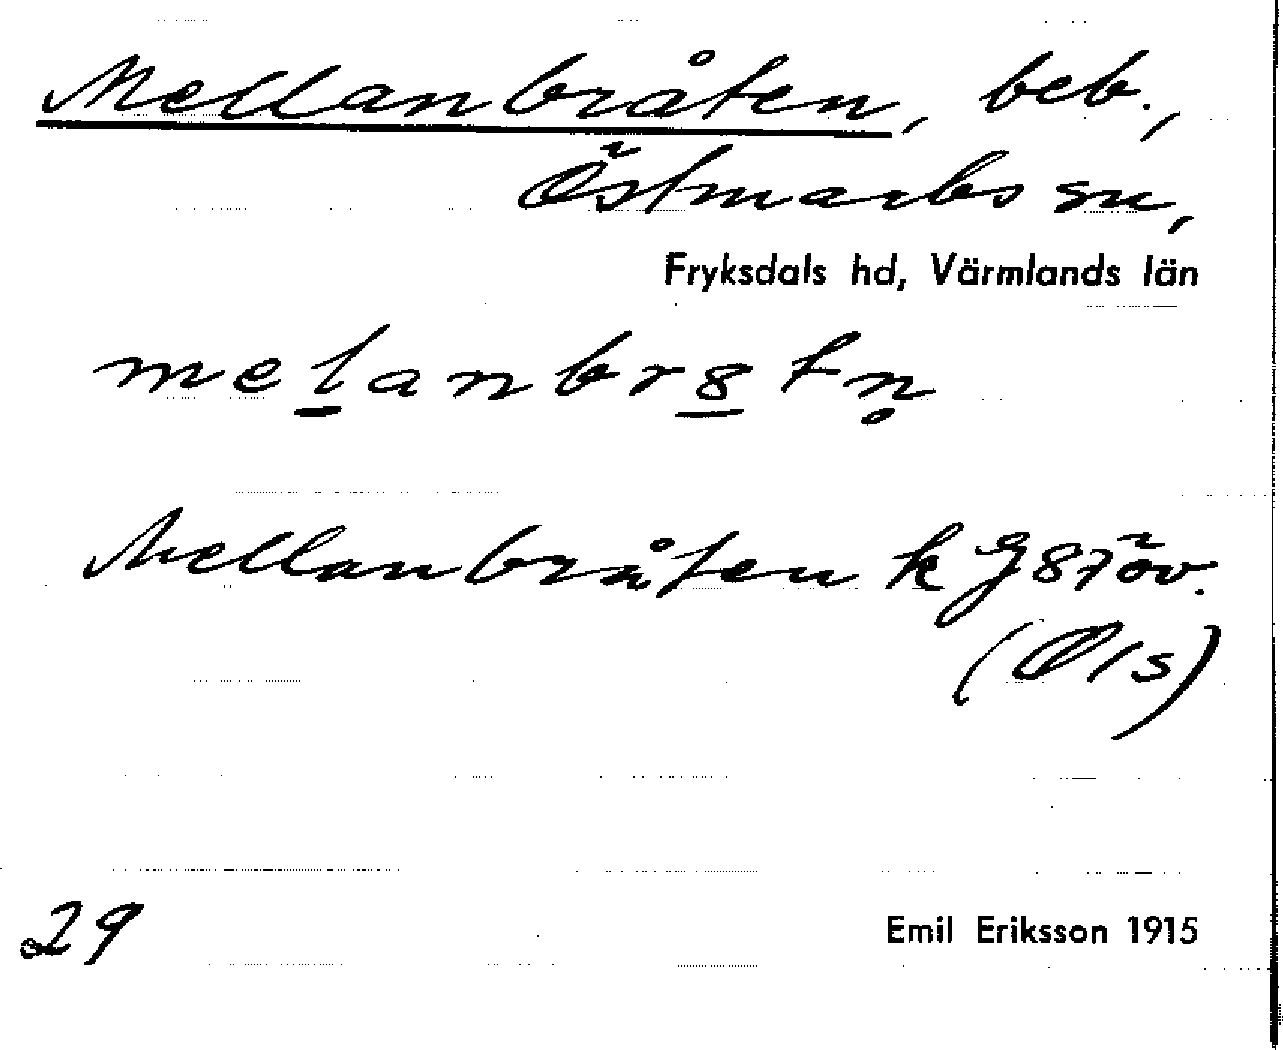 Mellanbråten, beb.,
Östmarks sn,
Fryksdals hd, Värmlands län
mel̲anbr8̲tn̥
Mellanbråten k J87öv.
(Ols)
29
Emil Eriksson 1915